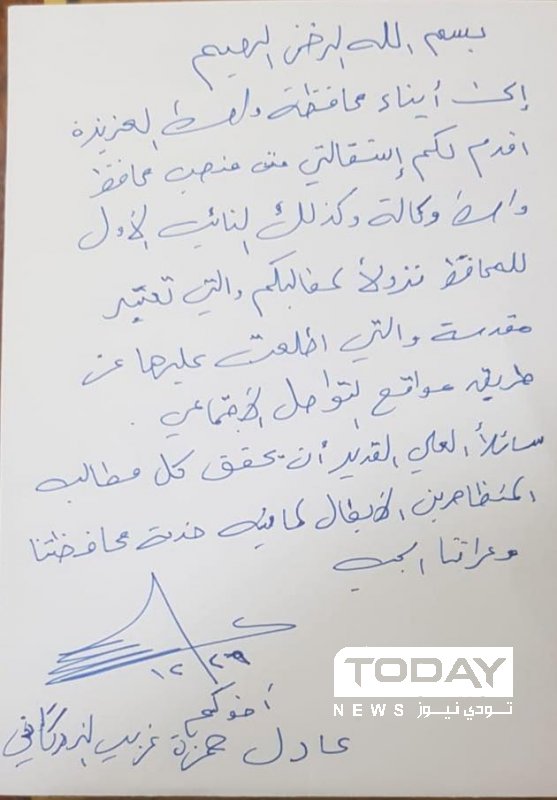 بسم الله الرحمن الرحيم
إلى أبناء محافظة واسط العزيزة
اقدم لكم إستقالتي من منصب محافظ
واسط وكالة وكذلك النائب الأول
للمحافظ نزولاً لمطالبكم والتي تعتبر
مقدسة والتي اطلعت عليها عن
طريق مواقع التواصل الأجتماعي .
سائلاً العلي القدير أن يحقق كل مطالب
المتظاهرين الأبطال لما فيه خدمة محافظتنا
وعراقنا الحبيب
١٢/٢٩
أخوكم
عادل حمزة غريب الزركاني
TODAY
NEWS تودي نيوز